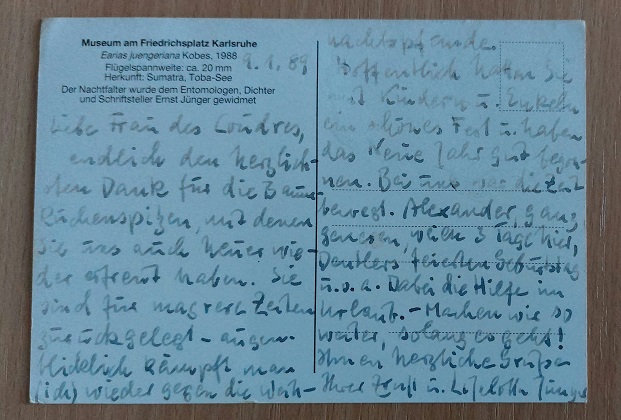 Museum am Friedrichsplatz Karlsruhe
Earias juengeriana Kobes, 1988
Flügelspannweite: ca. 20 mm
Herkunft: Sumatra, Toba-See
Der Nachtfalter wurde dem Entomologen, Dichter
und Schriftsteller Ernst Jünger gewidmet
9.1.89
Liebe Frau des Coudres,
endlich den herzlich-
sten Dank für die Baum-
kuchenspitzen, mit denen
Sie uns auch heuer wie-
der erfreut haben. Sie
sind für magrere Zeiten
zurückgelegt – augen-
blicklich kämpft man
(ich) wieder gegen die Weih-
nachtspfunde.
Hoffentlich hatten Sie
mit Kindern u. Enkeln
ein schönes Fest u. haben
das Neue Jahr gut begon-
nen. Bei uns war die Zeit
bewegt. Alexander, ganz
genesen, 3 Tage hier,
feierten Geburtstag
u.s.a. Dabei die Hilfe im
Urlaub. – Machen wir so
weiter, solang es geht!
Ihnen herzliche Grüße
Ihrer Ernst u. Liselotte Jünger